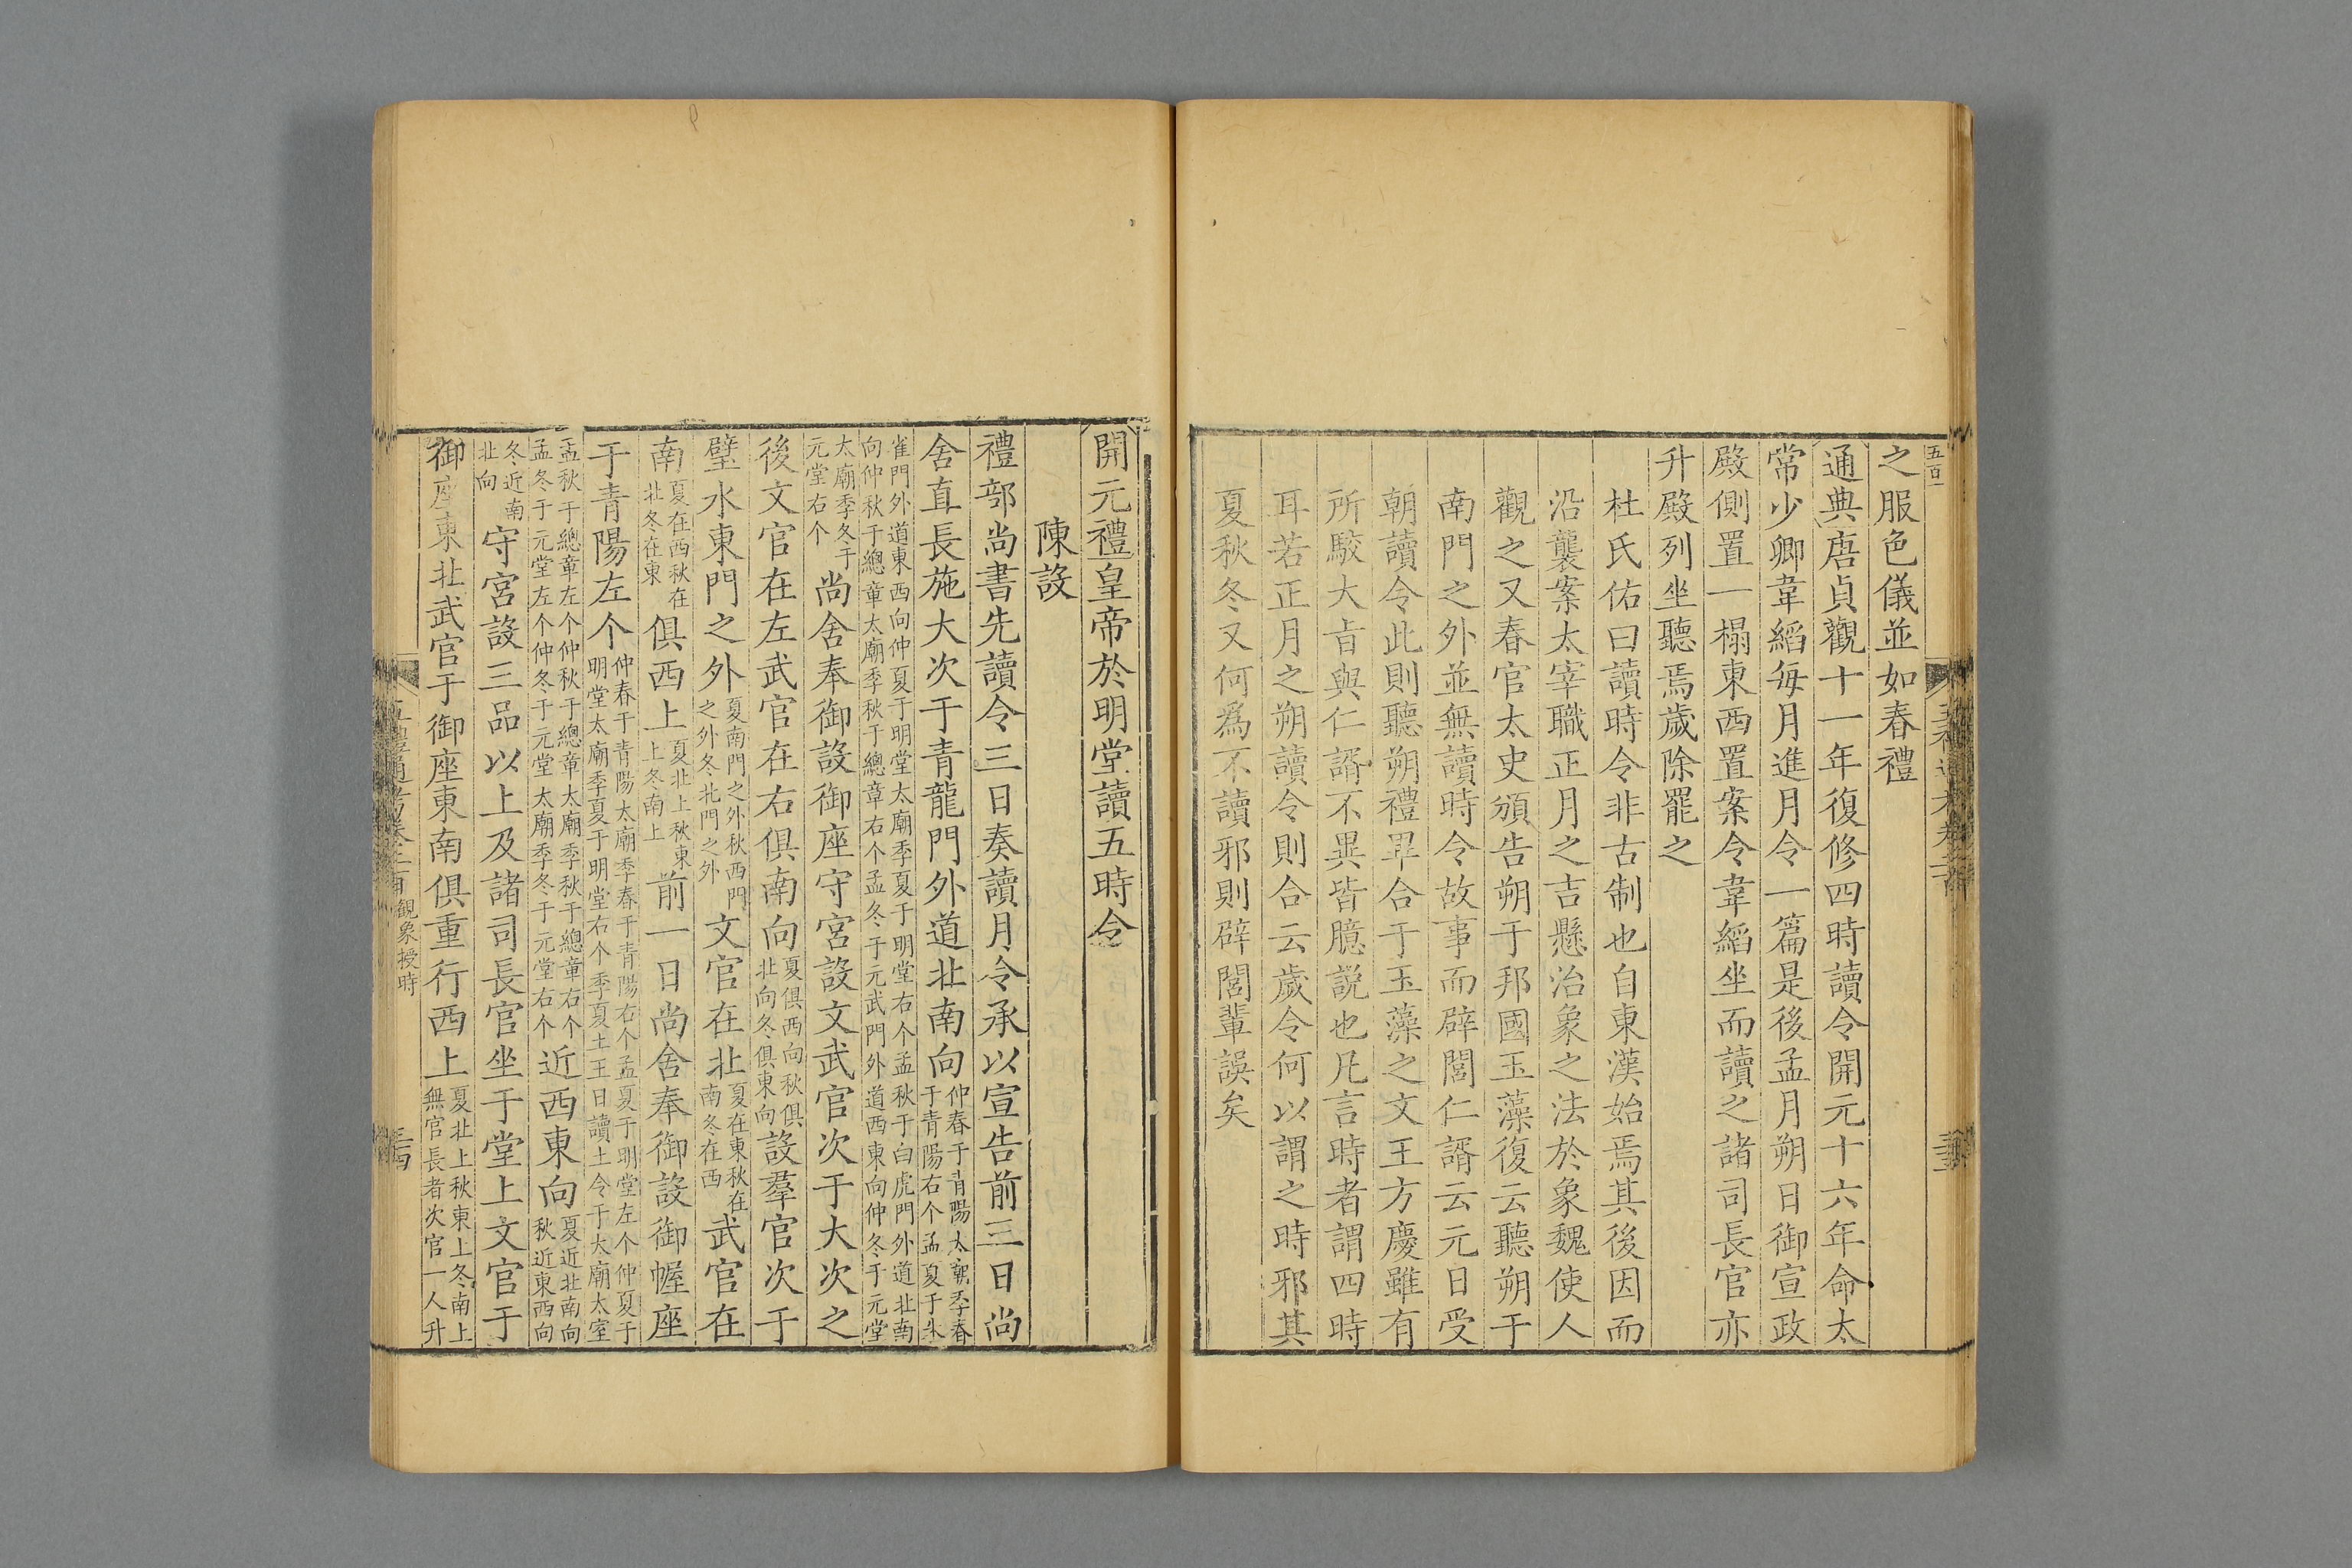 五百一
之服色儀並如春禮
通典唐貞觀十一年復修四時讀令開元十六年命太
常少卿韋縚每月進月令一篇是後孟月朔日御宣政
殿側置一榻東西置案令韋縚坐而讀之諸司長官亦
升殿列坐聽焉歲除罷之
杜氏佑曰讀時令非古制也自東漢始焉其後因而
沿襲案太宰職正月之吉懸治象之法於象魏使人
觀之又春官太史頒告朔于邦國玉藻復云聽朔于
南門之外並無讀時令故事而辟閭仁諝云元日受
朝讀令此則聽朔禮畢合于玉藻之文王方慶雖有
所駮大㫖與仁諝不異皆臆説也凡言時者謂四時
耳若正月之朔讀令則合云歲令何以謂之時邪其
夏秋冬又何爲不讀邪則辟閭輩誤矣
開元禮皇帝於明堂讀五時令
陳設
禮部尚書先讀令三日奏讀月令承以宣告前三日尚
舍直長施大次于青龍門外道北南向仲春于青陽太廟季春
于青陽右个孟夏于朱
雀門外道東西向仲夏于明堂太廟季夏于明堂右个孟秋于白虎門外道北南
向仲秋于總章太廟季秋于總章右个孟冬于元武門外道西東向仲冬于元堂
太廟季冬于
元堂右个尚舍奉御設御座守宮設文武官次于大次之
後文官在左武官在右俱南向夏俱西向秋俱
北向冬俱東向設羣官次于
璧水東門之外夏南門之外秋西門
之外冬北門之外文官在北夏在東秋在
南冬在西武官在
南夏在西秋在
北冬在東俱西上夏北上秋東
上冬南上前一日尚舍奉御設御幄座
于青陽左个仲春于青陽太廟季春于青陽右个孟夏于明堂左个仲夏于
明堂太廟季夏于明堂右个季夏土王日讀土令于大廟太室
孟秋于總章左个仲秋于總章太廟季秋于總章右个
孟冬于元堂左个仲冬于元堂太廟季冬于元堂右个近西東向夏近北南向
秋近東西向
冬近南
北向守宮設三品以上及諸司長官坐于堂上文官于
御座東北武官于御座東南俱重行西上夏北上秋東上冬南上
無官長者次官一人升
觀象授時